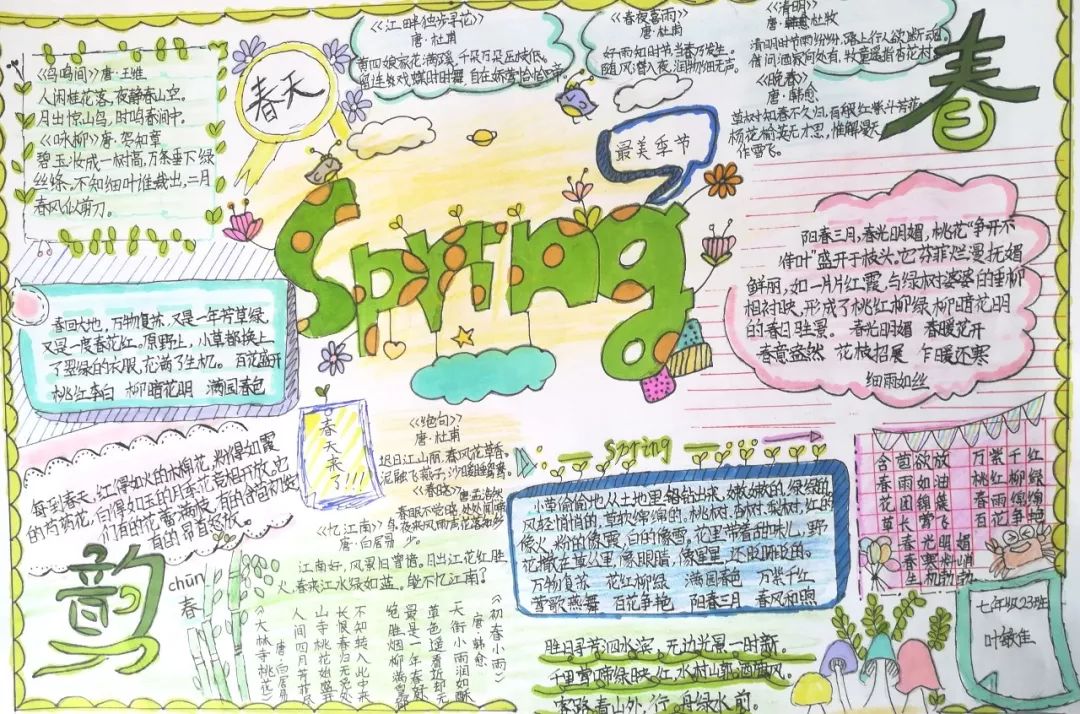 《鸟鸣间》唐·王维
人闲桂花落，夜静春山空。
月出惊山鸟，时鸣春涧中。
《咏柳》唐·贺知章
碧玉妆成一树高，万条垂下绿
丝绦。不知细叶谁裁出，二月
春风似剪刀。
春天
《江畔独步寻花》
唐·杜甫
黄四娘家花满蹊，千朵万朵压枝低。
留连戏蝶时时舞，自在娇莺恰恰啼。
《春夜喜雨》
唐·杜甫
好雨知时节，当春乃发生。
随风潜入夜，润物细无声。
《清明》
唐·杜牧
清明时节雨纷纷，路上行人欲断魂。
借问酒家何处有，牧童遥指杏花村。
《晚春》
唐·韩愈
草树知春不久归，百般红紫斗芳菲。
杨花榆荚无才思，惟解漫天
作雪飞。
春
最美季节
Spring
阳春三月，春光明媚，桃花“争开不
待叶”盛开于枝头。它芬菲烂漫，抚媚
鲜丽，如一片片红霞，与绿树婆娑的垂柳
相衬映，形成了桃红柳绿，柳暗花明
的春日胜景。 春光明媚 春暖花开
春意盎然 花枝招展 乍暖还寒
细雨如丝
春回大地，万物复苏，又是一年芳草绿，
又是一度春花红。原野上，小草都换上
了翠绿的衣服，充满了生机。 百花盛开
桃红李白 柳暗花明 满园春色
春天来了!!!
《绝句》
唐·杜甫
迟日江山丽，春风花草香。
泥融飞燕子，沙暖睡鸳鸯。
《春晓》 唐·孟浩然
春眠不觉晓，处处闻啼鸟。
夜来风雨声，花落知多
少。
每到春天，红得如火的木棉花，粉得如霞
的芍药花，白得如玉的月季花竞相开放。它
们有的花蕾满枝，有的含苞初绽，
有的昂首怒放。
《忆江南》
唐·白居易
江南好，风景旧曾谙。日出江花红胜
火，春来江水绿如蓝。能不忆江南？
韵
chūn
春
《大林寺桃花》
唐·白居易
人间四月芳菲尽
山寺桃花始盛开
长恨春归无觅处
不知转入此中来
《初春小雨》
唐·韩愈
天街小雨润如酥
草色遥看近却无
最是一年春好处
绝胜烟柳满皇都
Spring
小草偷偷地从土地里钻出来，嫩嫩的，绿绿的。
风轻悄悄的，草软绵绵的。桃树、杏树、梨树，红的
像火，粉的像霞，白的像雪。花里带着甜味儿，野
花撒在草丛里，像眼睛，像星星，还眨呀眨的。
万物复苏 花红柳绿 满园春色 万紫千红
莺歌燕舞 百花争艳 阳春三月 春风和煦
胜日寻芳泗水滨，无边光景一时新。
千里莺啼绿映红，水村山郭酒旗风。
客路青山外，行舟绿水前。
含苞欲放 万紫千红
春雨如油 桃红柳绿
花团锦簇 春雨绵绵
草长莺飞 百花争艳
春光明媚
春寒料峭
生机勃勃
七年级23班
叶敏佳